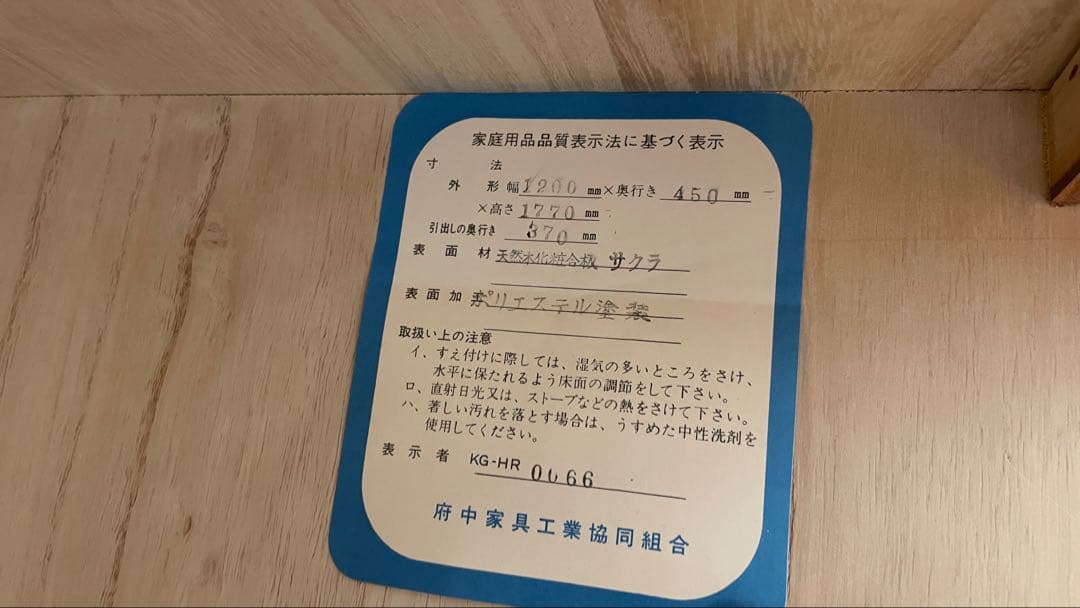 家庭用品品質表示法に基づく表示
寸法
外形 幅1200mm×奥行き 450mm
×高さ1770mm
引出しの奥行き 370mm
表面材 天然木化粧合板 サクラ
表面加工 ポリエステル塗装
取扱い上の注意
イ、すえ付けに際しては、湿気の多いところをさけ、
水平に保たれるよう床面の調節をして下さい。
ロ、直射日光又は、ストーブなどの熱をさけて下さい。
ハ、著しい汚れを落とす場合は、うすめた中性洗剤を
使用してください。
表示者 KG-HR 0066
府中家具工業協同組合